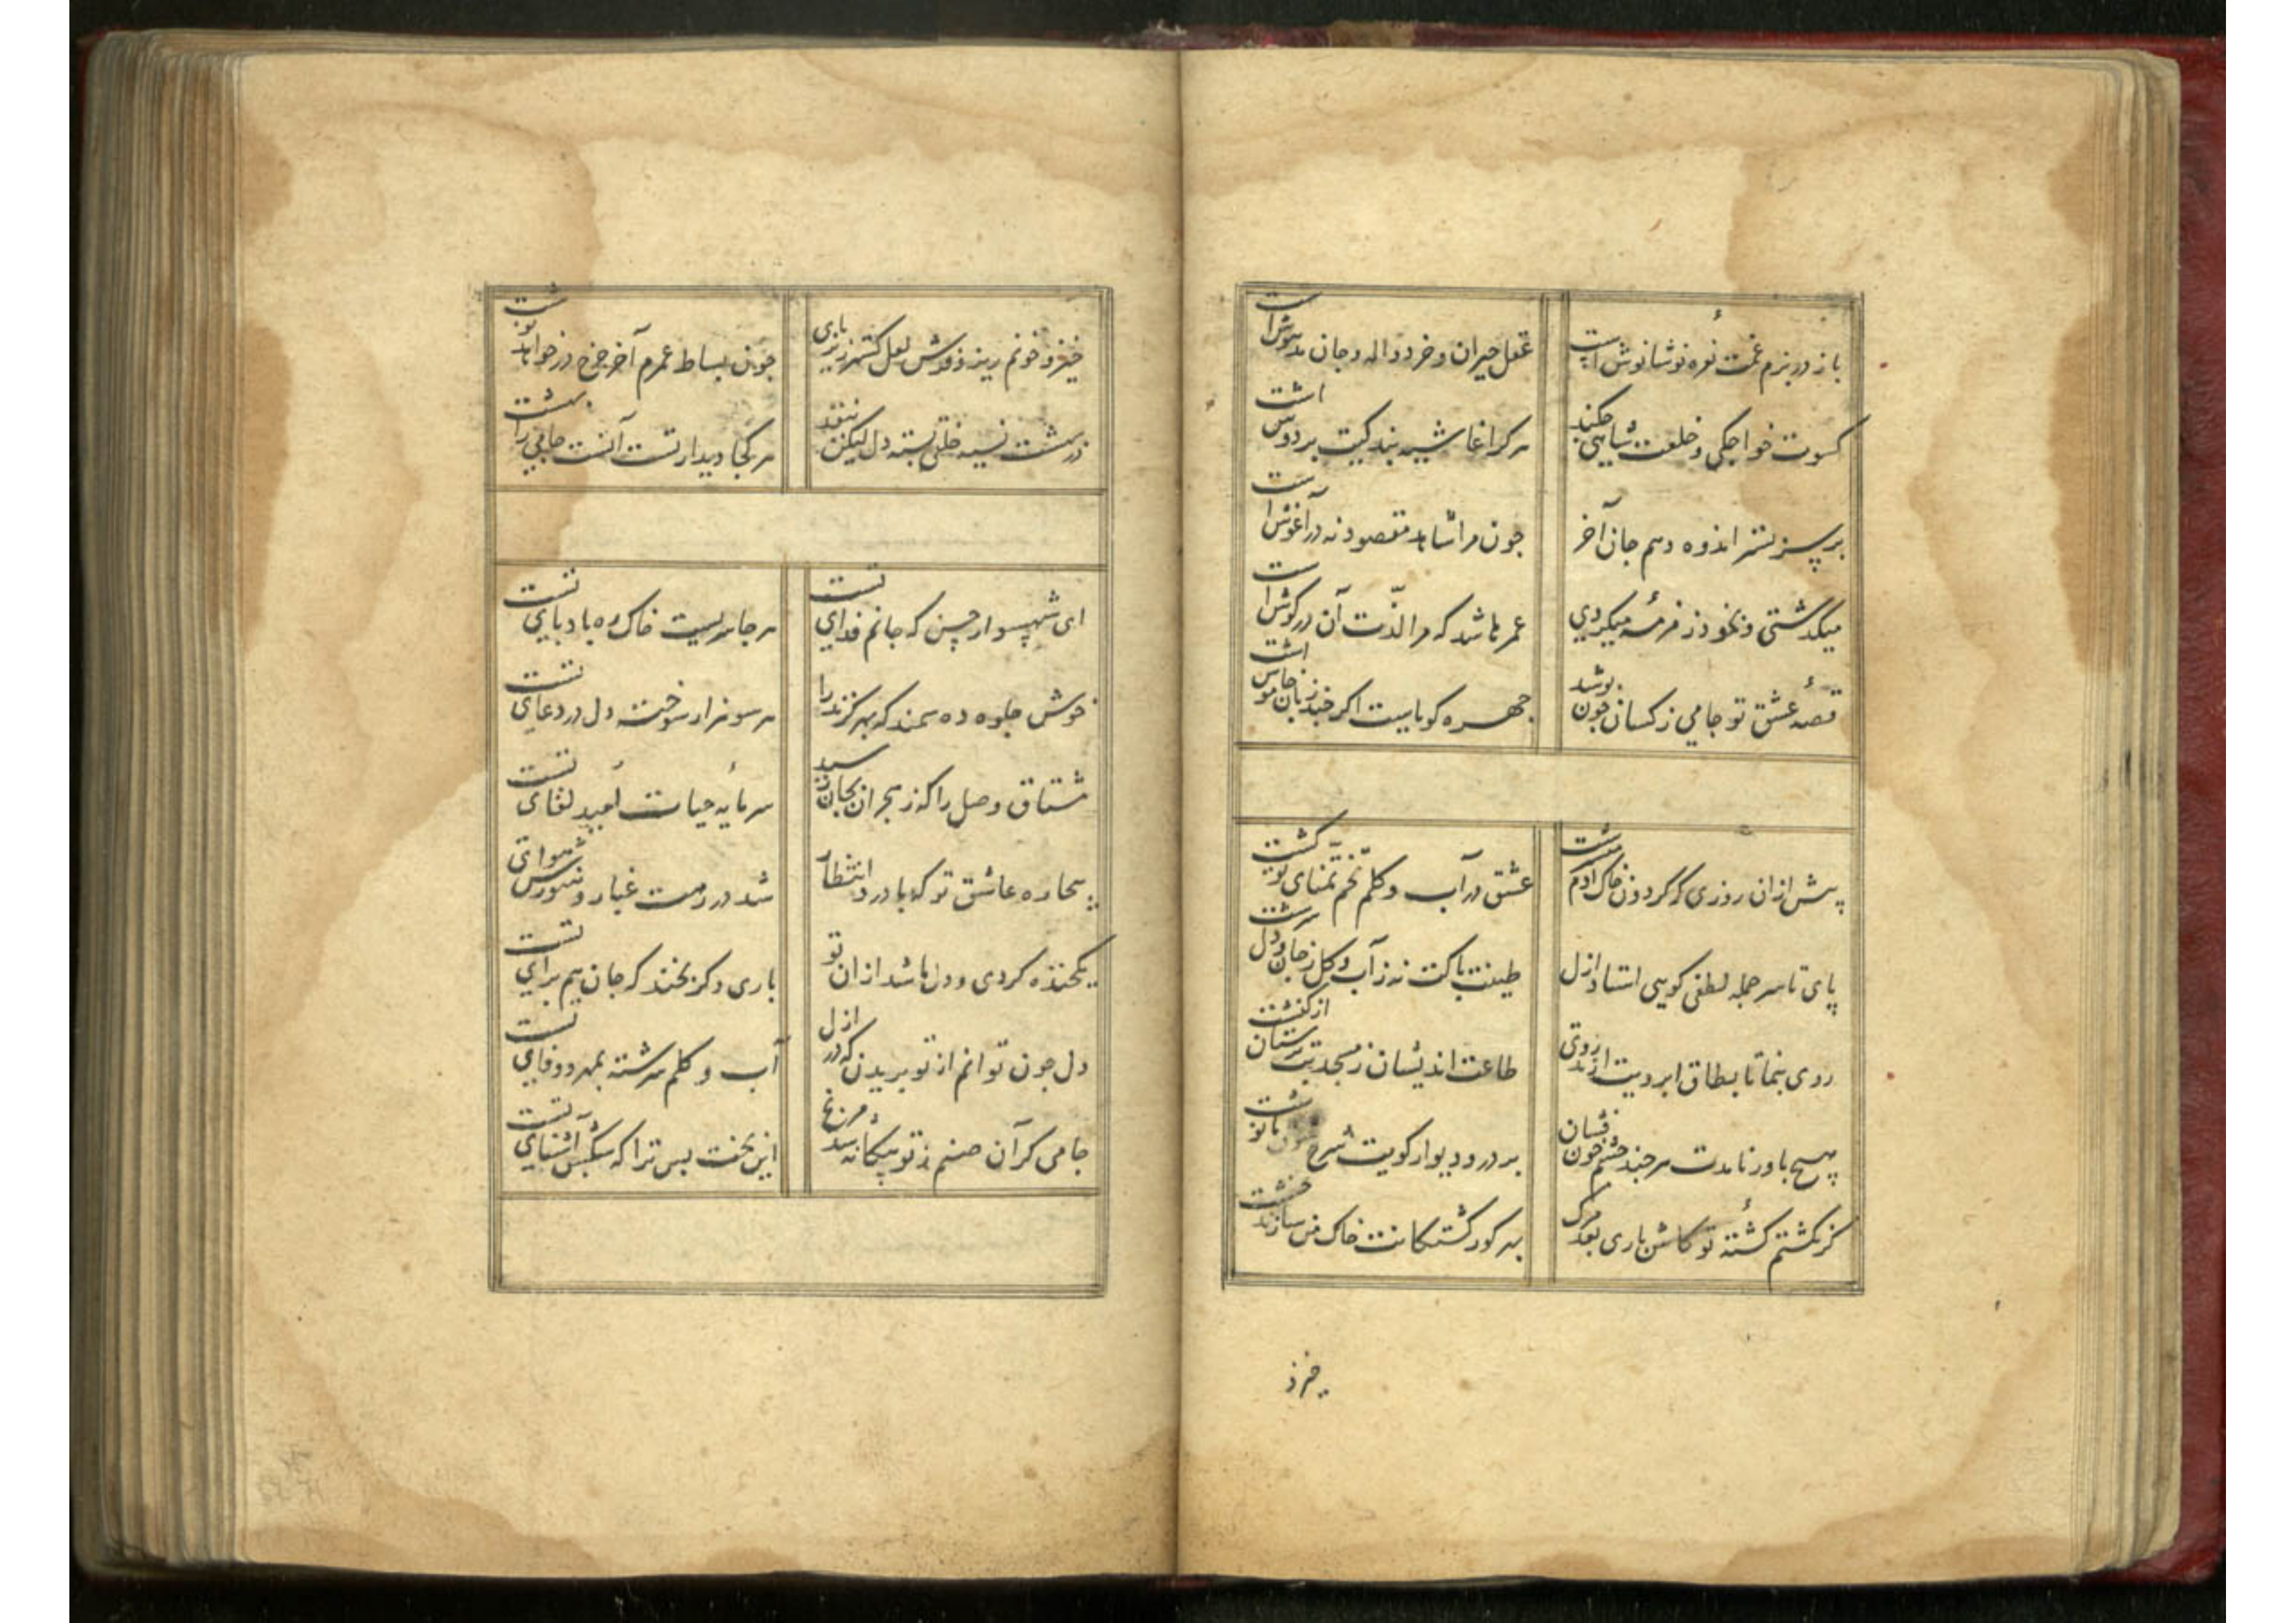 باز در بزم غمت نعره نوشانوش است عقل حیران و خرد واله و جان مدهوش است
کسوت خواجکی و خلعت شاهی چکند هر کرا غاشیه بندکیت بر دوش است
بر سر بستر اندوه دهم جان آخر چون مرا شاهد مقصود نه در آغوش است
میکذشتی و بخود زمزمه میکردی عمر باشد که مرا لذّت آن در کوش است
قصهٔ عشق تو جامی ز کسان چون پوشد چهره کویاست اکر چند زبان خاموش است
پیش ازان روزی که کردون خاک آدم سرشت عشق در آب و کلم تخم تمنای تو کشت
پای تا سر جمله لطفی کویی استاد ازل طینت پاکت نه ز آب و کل ز جان و دل سرشت
روی بنما تا بطاق ابرویت آرند روی طاعت اندیشان ز مسجد بت پرستان از کنشت
هیچ باور نامدت هر چند چشم خون فشان بر در و دیوار کویت شرح خون ما نوشت
کر نکشتم کشتهٔ تو کاش باری بعد مرک بهر کور کشتکانت خاک من سازند خشت
خیز و
خیز و خونم ریز و فرش لعل کستر زیر پای چون بساط عمرم آخر چرخ در خواهد نوشت
در بهشت نسیه خلقی بسته دل لیکن بنقد هر کجا دیدار تست آنست جامی را بهشت
ای شهسوار حسن که جانم فدای تست هر جا سریست خاک ره بادپای تست
خوش جلوه ده سمند که بهر کزند را هر سو هزار سوخته دل در دعای تست
مشتاق وصل را که ز هجران بجان رسید سرمایه حیات امید لقای تست
بیچاره عاشق تو که با درد انتظار شد در رهت غبار و هنوزش هوای تست
یکخنده کردی و دل ما شد ازان تو باری دکر بخند که جان هم برای تست
دل چون توانم از تو بریدن که در ازل آب و کلم سرشته بمهر و وفای تست
جامی کر آن صنم ز تو بیکانه شد مرنج این بخت بس ترا که سکش آشنای تست